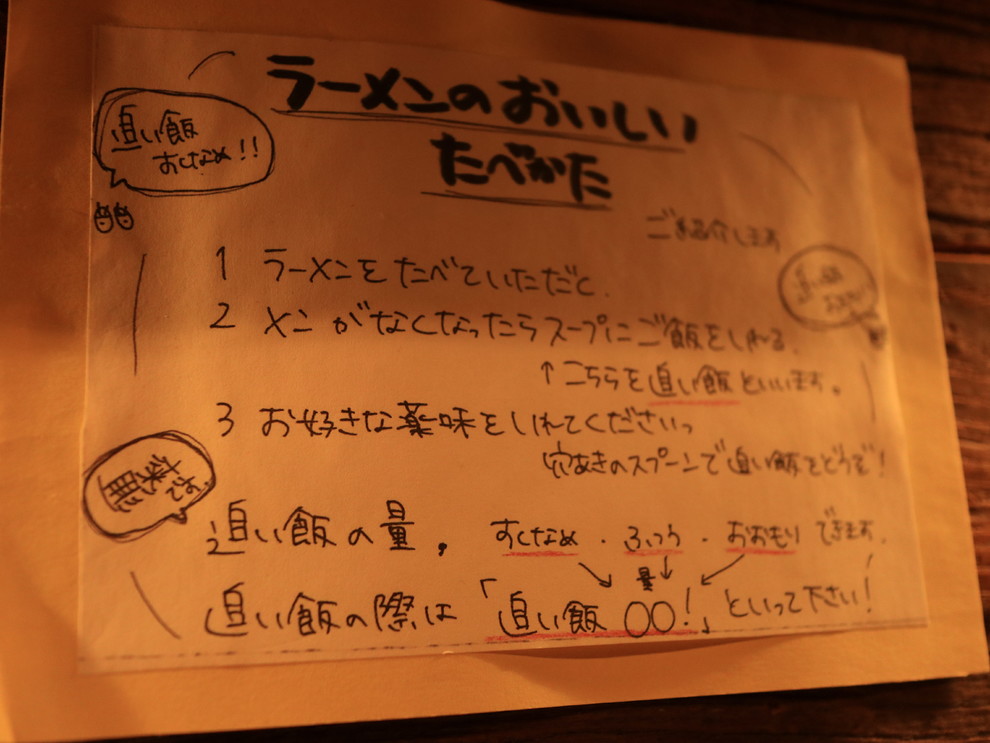 ラーメンのおいしい
たべかた
追い飯
すくなめ!!
ご紹介します
1 ラーメンをたべていただく.
2 メンがなくなったらスープにご飯をいれる.
↑こちらを追い飯といいます。
3 お好きな薬味をいれてくださいっ
穴あきのスプーンで追い飯をどうぞ!
すべて
無料
追い飯の量, すくなめ・ふつう・おおもりできます.
量
追い飯の際は「追い飯 〇〇!」といって下さい!